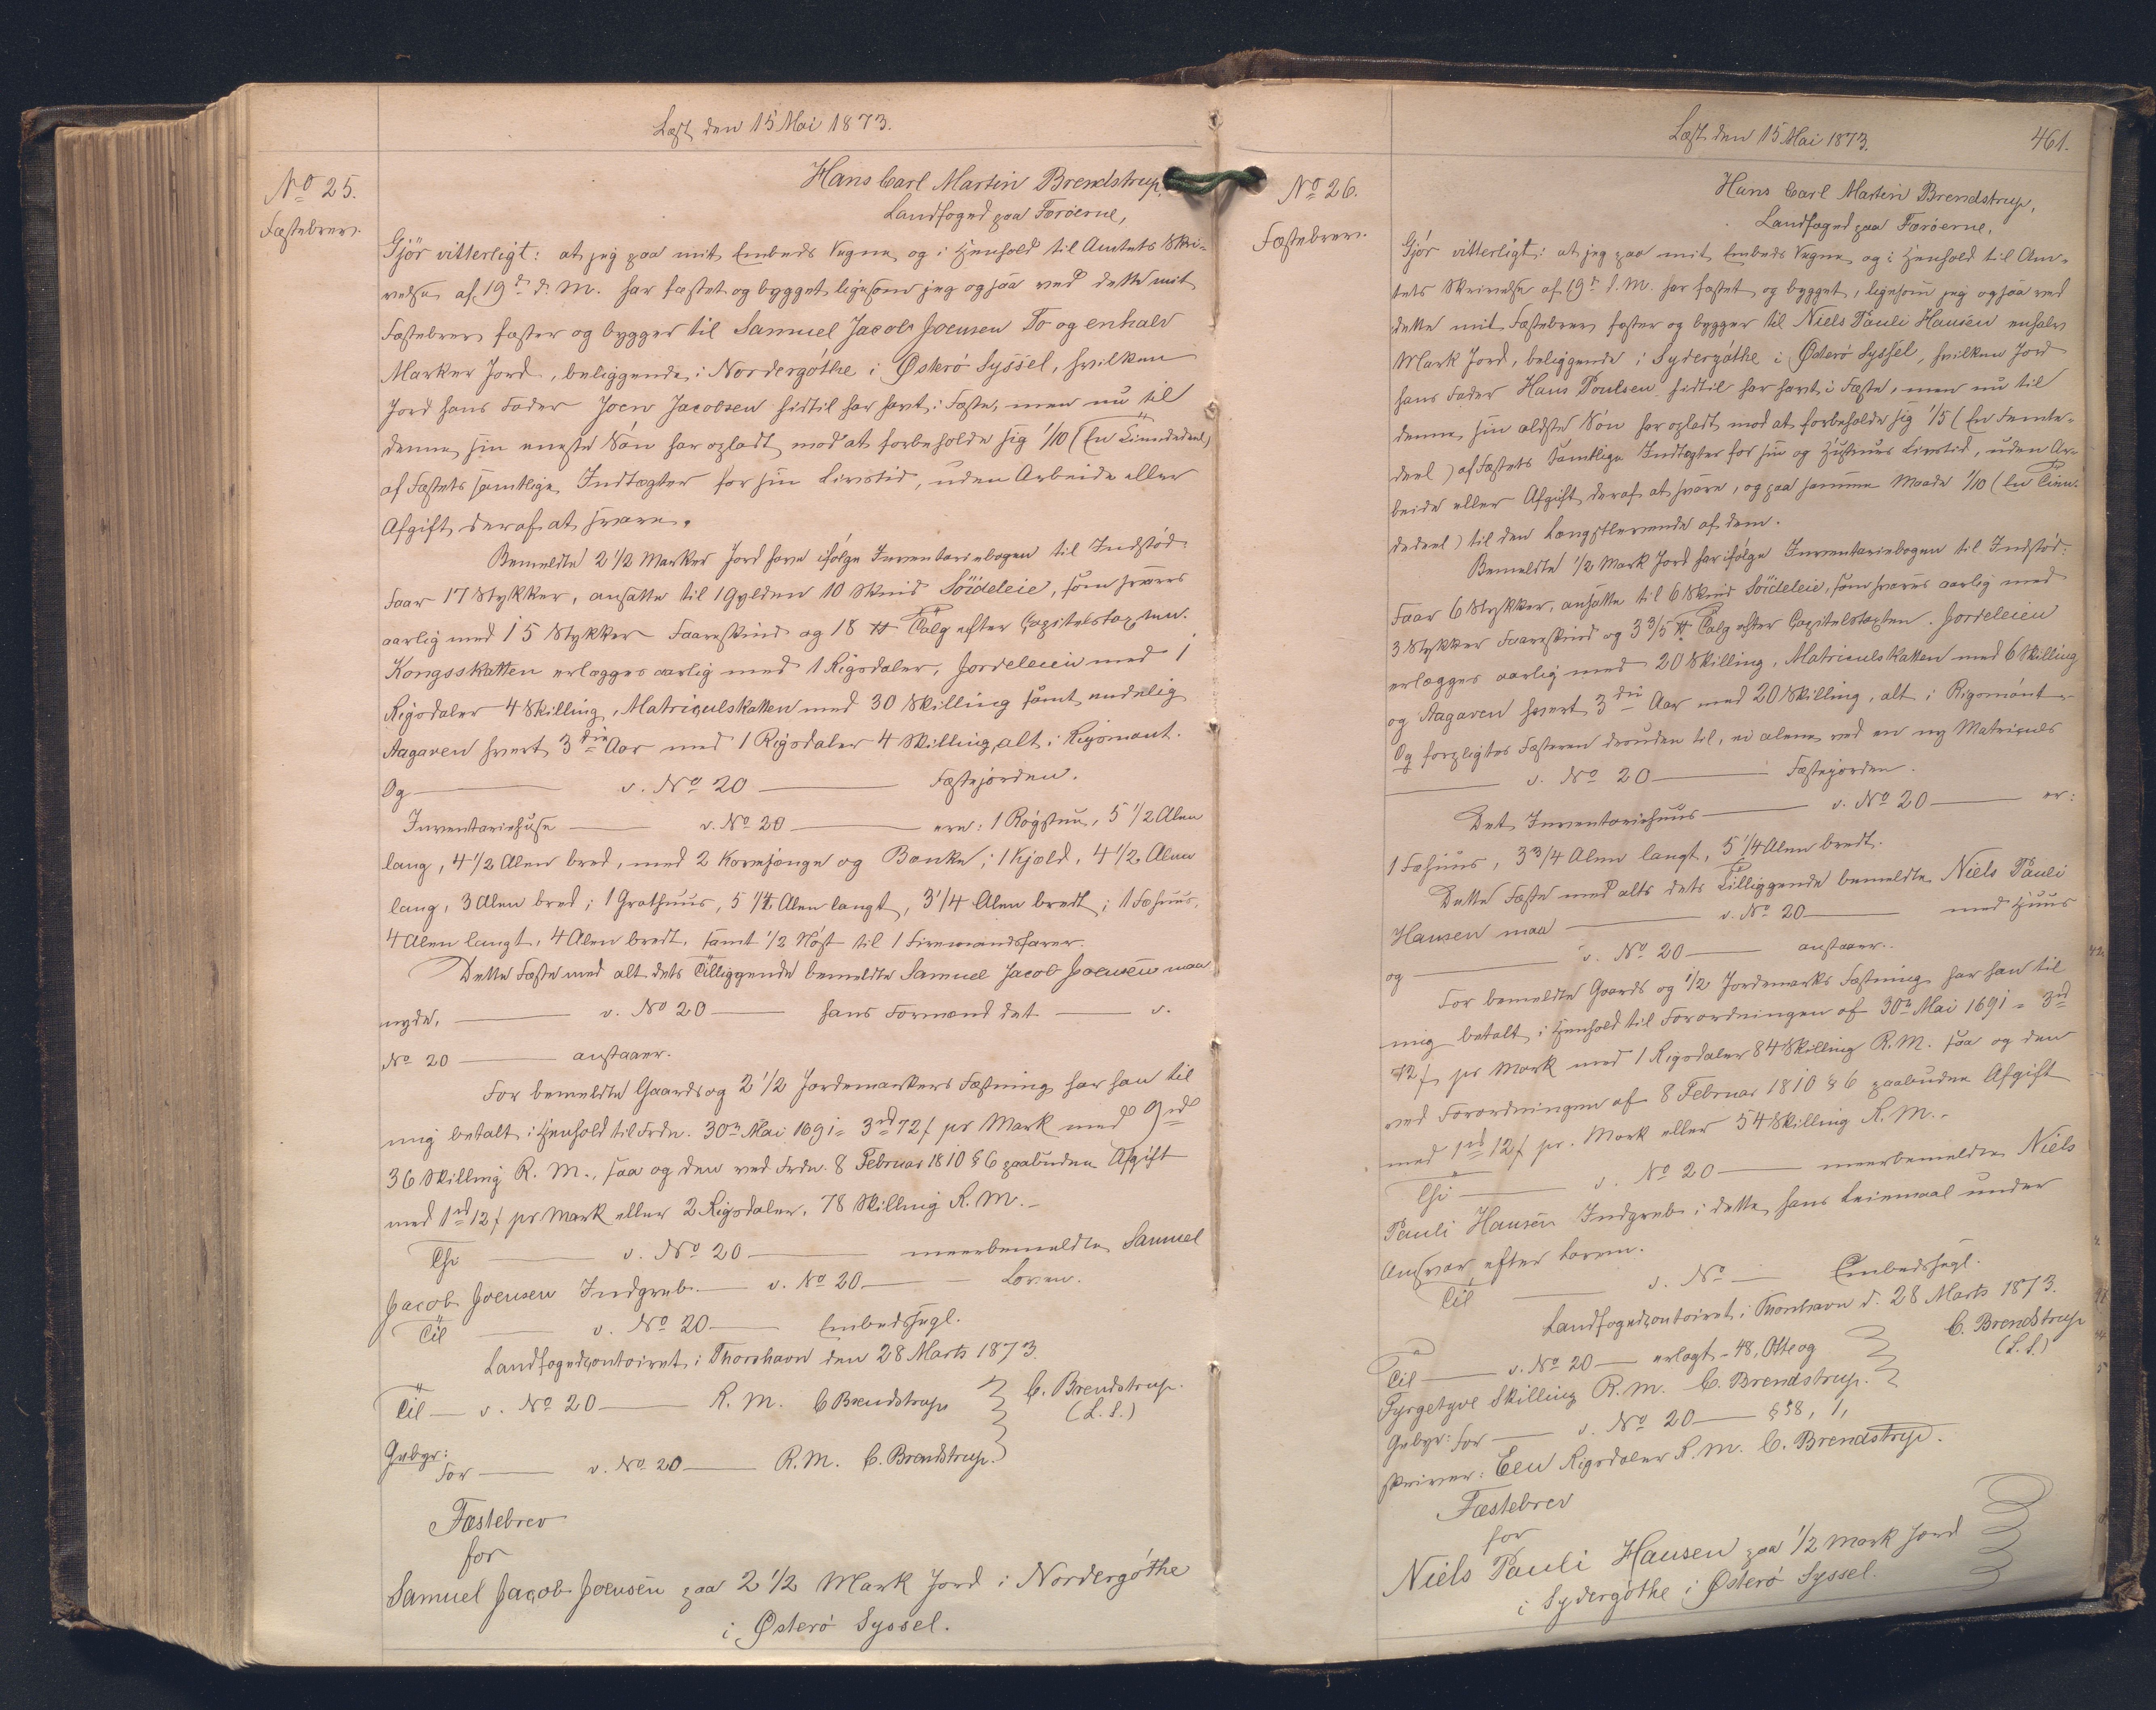 Læst den 15 Mai 1873.
No 25.
Fæstebrev.
Hans Carl Martin Brendstrup,
Landfoged paa Færöerne,
Gjör vitterligt: at jeg paa mit Embeds Vegne og i Henhold til Amtets Skri-
velse af 19de d. M. har fæstet og bygget ligesom jeg ogsaa ved dette mit
Fæstebrev fæster og bygger til Samuel Jacob Joensen To og enhalv
Marker Jord, beliggende i Nordergöthe i Østerö Syssel, hvilken
Jord hans Fader Joen Jacobsen hidtil har havt i Fæste, men nu til
denne sin eneste Sön har opladt mod at forbeholde sig 1/10 (En Tiendedeel)
af Fæstets samtlige Indtægter for sin Livstid, uden Arbeide eller
Afgift deraf at svare.
Bemeldte 2 1/2 Marker Jord have ifölge Inventariebogen til Indstöd:
Faar 17 Stykker, ansatte til 1 Gylden 10 Skind Söideleie, som svares
aarlig med 15 Stykker Faareskind og 18 ℔ Talg efter Capitelstaxten.
Kongsskatten erlægges aarlig med 1 Rigsdaler, Jordeleien med 1
Rigsdaler 4 Skilling, Matriculskatten med 30 Skilling samt endelig
Aagaven hvert 3die Aar med 1 Rigsdaler 4 Skilling, alt i Rigsmönt.
Og — v. No 20 — Fæstejorden.
Inventariehuse — v. No 20 — ere: 1 Rögstue, 5 1/2 Alen
lang, 4 1/2 Alen bred, med 2 Kovesenge og Bænke; 1 Hjæld, 4 1/2 Alen
lang, 3 Alen bred; 1 Grothuus, 5 1/2 Alen langt, 3 1/4 Alen bredt; 1 Fæhuus,
4 Alen langt, 4 Alen bredt, samt 1/2 Nöst til 1 Firemandsfarer.
Dette Fæste med alt dets Tilliggende bemeldte Samuel Jacob Joensen maa
nyde, — v. No 20 — hans Formand det — v.
No 20 — anstaaer.
For bemeldte Gaards og 2 1/2 Jordemarkers Fæstning har han til
mig betalt i Henhold til Frdn. 30te Mai 1691 = 3rd 72 ſ pr Mark med 9rd
36 Skilling R. M., saa og den ved Frdn. 8 Februar 1810 § 6 paabudne Afgift
med 1rd 12 ſ pr Mark eller 2 Rigsdaler, 78 Skilling R. M. –
Thi — v. No 20 — meerbemeldte Samuel
Jacob Joensen Indgreb — v. No 20 — Loven.
Til — v. No 20 — Embedssegl.
Landfogedcontoiret i Thorshavn den 28 Marts 1873.
C. Brendstrup.
(L. S.)
Til — v. No 20 — R. M. C Brendstrup
Gebyr:
For — v. No 20 — R. M. C. Brendstrup.
Fæstebrev
for
Samuel Jacob Joensen paa 2 1/2 Mark Jord i Nordergöthe
i Österö Syssel.
Læst den 15 Mai 1873.
461.
No 26.
Fæstebrev.
Hans Carl Martin Brendstrup,
Landfoged paa Færöerne,
Gjör vitterligt: at jeg paa mit Embeds Vegne og i Henhold til Am-
tets Skrivelse af 19de d. M. har fæstet og bygget, ligesom jeg ogsaa ved
dette mit Fæstebrev fæster og bygger til Niels Pauli Hansen enhalv
Mark Jord, beliggende i Sydergöthe i Österö Syssel, hvilken Jord
hans Fader Hans Poulsen hidtil har havt i Fæste, men nu til
denne sin ældste Sön har opladt mod at forbeholde sig 1/5 (En Femte-
deel) af Fæstets samtlige Indtægter for sin og Hustrues Livstid, uden Ar-
beide eller Afgift deraf at svare, og paa samme Maade 1/10 (En Tien-
dedeel) til den Længstlevende af dem.
Bemeldte 1/2 Mark Jord har ifölge Inventariebogen til Indstöd:
Faar 6 Stykker, ansatte til 6 Skind Söideleie, som svares aarlig med
3 Stykker Faareskind og 3 3/5 ℔ Talg efter Capitelstaxten. Jordeleien
erlægges aarlig med 20 Skilling, Matriculskatten med 6 Skilling
og Aagaven hvert 3die Aar med 20 Skilling, alt i Rigsmönt.
Og forpligtes Fæsteren desuden til, ei alene ved en ny Matriculs
— v. No 20 — Fæstejorden.
Det Inventariehuus — v. No 20 — er:
1 Fæhuus, 3 3/4 Alen langt, 5 1/4 Alen bredt.
Dette Fæste med alts dets Tilliggende bemeldte Niels Pauli
Hansen maa — v. No 20 — med Huus
og — v. No 20 — anstaaer.
For bemeldte Gaards og 1/2 Jordemarks Fæstning har han til
mig betalt i Henhold til Forordningen af 30te Mai 1691 = 3rd
72 ſ pr Mark med 1 Rigsdaler 84 Skilling R. M. saa og den
ved Forordningen af 8 Februar 1810 § 6 paabudne Afgift
med 1rd 12 ſ pr. Mark eller 54 Skilling R. M. –
Thi — v. No 20 — meerbemeldte Niels
Pauli Hansen Indgreb i dette hans Leiemaal under
Ansvar efter Loven.
Til — v. No — Embedssegl.
Landfogedcontoiret i Thorshavn d. 28 Marts 1873.
C. Brendstrup
(L. S.)
Til — v. No 20 — erlagt – 48, Otte og
Fyrgetyve Skilling R. M. C. Brendstrup.
Gebyr: For — v. No 20 — § 58, 1,
skriver: Een Rigsdaler R. M. C. Brendstrup.
Fæstebrev
for
Niels Pauli Hansen paa 1/2 Mark Jord
i Sydergöthe i Österö Syssel.